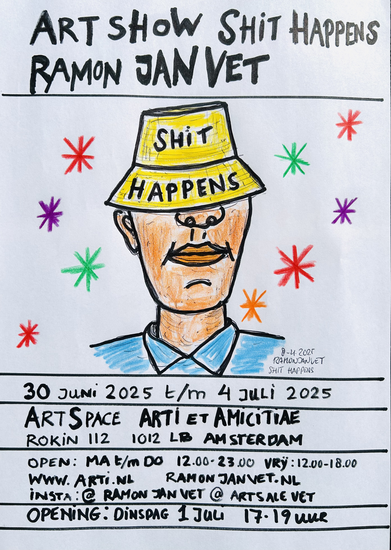 ART SHOW SHIT HAPPENS
RAMON JAN VET
SHIT
HAPPENS
8-4 2025
RAMONJANVET
SHIT HAPPENS
30 JUNI 2025 t/m 4 JULI 2025
ARTSPACE ARTI ET AMICITIAE
ROKIN 112 1012 LB AMSTERDAM
OPEN: MA t/m DO 12.00-23.00 VRIJ: 12.00-18.00
WWW.ARTI.NL RAMONJANVET.NL
INSTA: @ RAMON JAN VET @ ARTSALE VET
OPENING: DINSDAG 1 JULI 17-19 uur